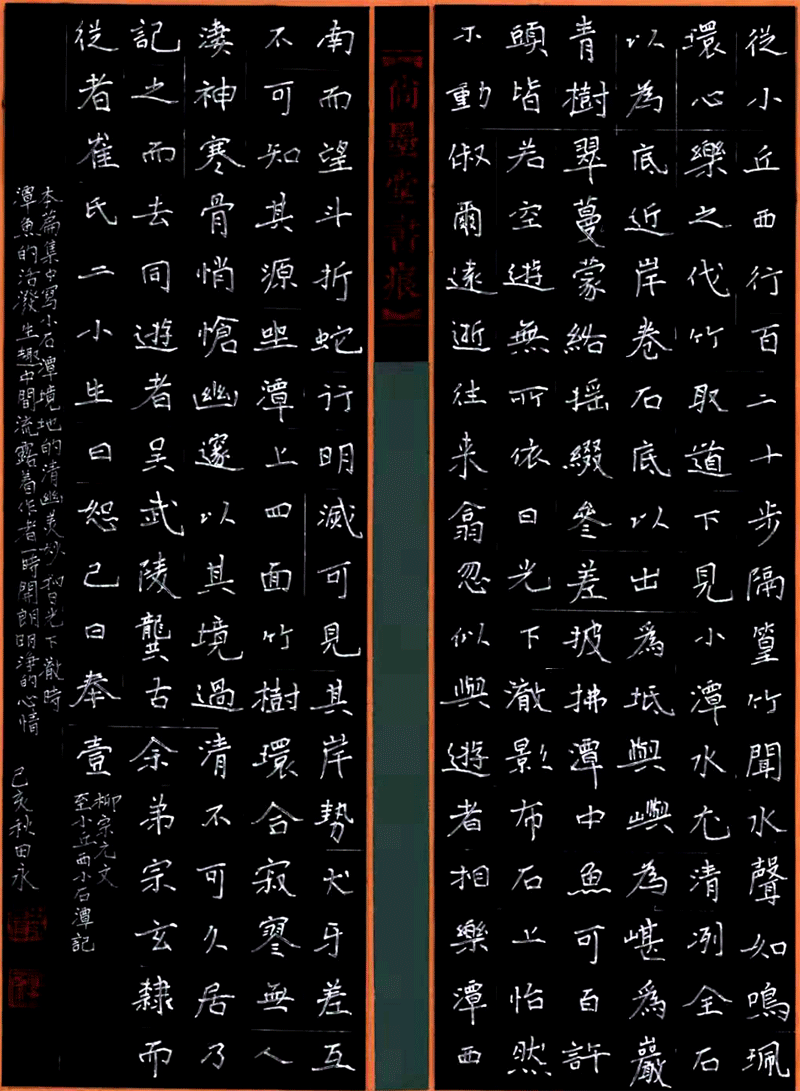 從小丘西行百二十步隔篁竹聞水聲如鳴珮
環心樂之伐竹取道下見小潭水尤清冽全石
以為底近岸卷石底以出為坻與嶼為嵁為巖
青樹翠蔓蒙絡搖綴參差披拂潭中魚可百許
頭皆若空遊無所依日光下澈影布石上怡然
不動俶爾遠逝往來翕忽似與遊者相樂潭西
【尚墨堂書痕】
南而望斗折蛇行明滅可見其岸勢犬牙差互
不可知其源坐潭上四面竹樹環合寂寥無人
淒神寒骨悄愴幽邃以其境過清不可久居乃
記之而去同遊者吳武陵龔古余弟宗玄隸而
從者崔氏二小生曰恕己曰奉壹
柳宗元文
至小丘西小石潭記
本篇集中寫小石潭境地的清幽美妙和日光下澈時
潭魚的活潑生趣中間流露着作者一時開朗明淨的心情
己亥秋田永